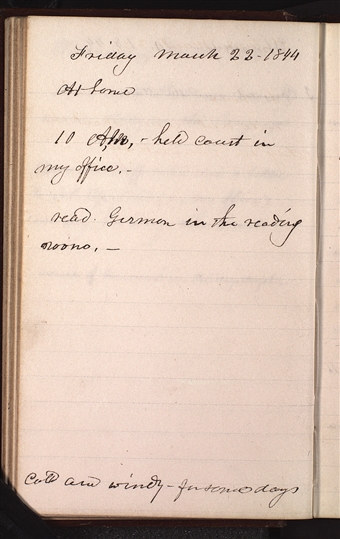 Friday March 22-1844
At home
10 AM, - held Court in
my office. -
read German in the reading
room. -
Cold and windy - for some days